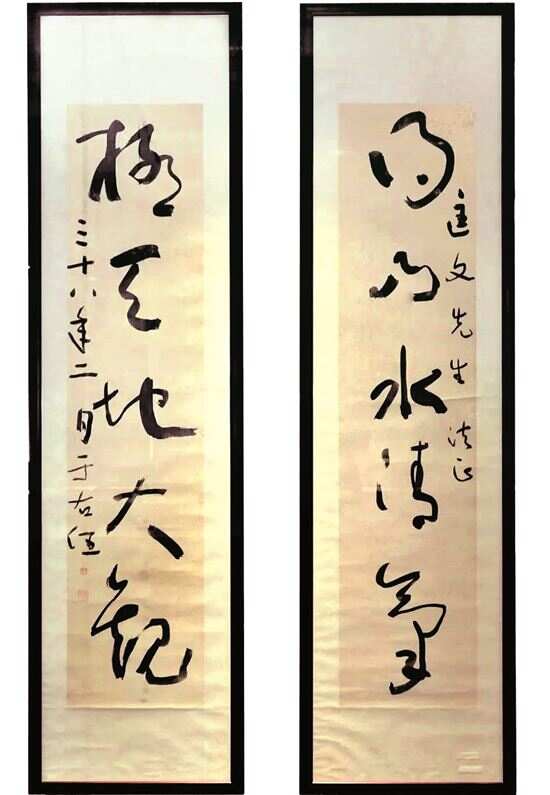 得山水清氣
匡文先生 法正
極天地大觀
三十八年二月 于右任